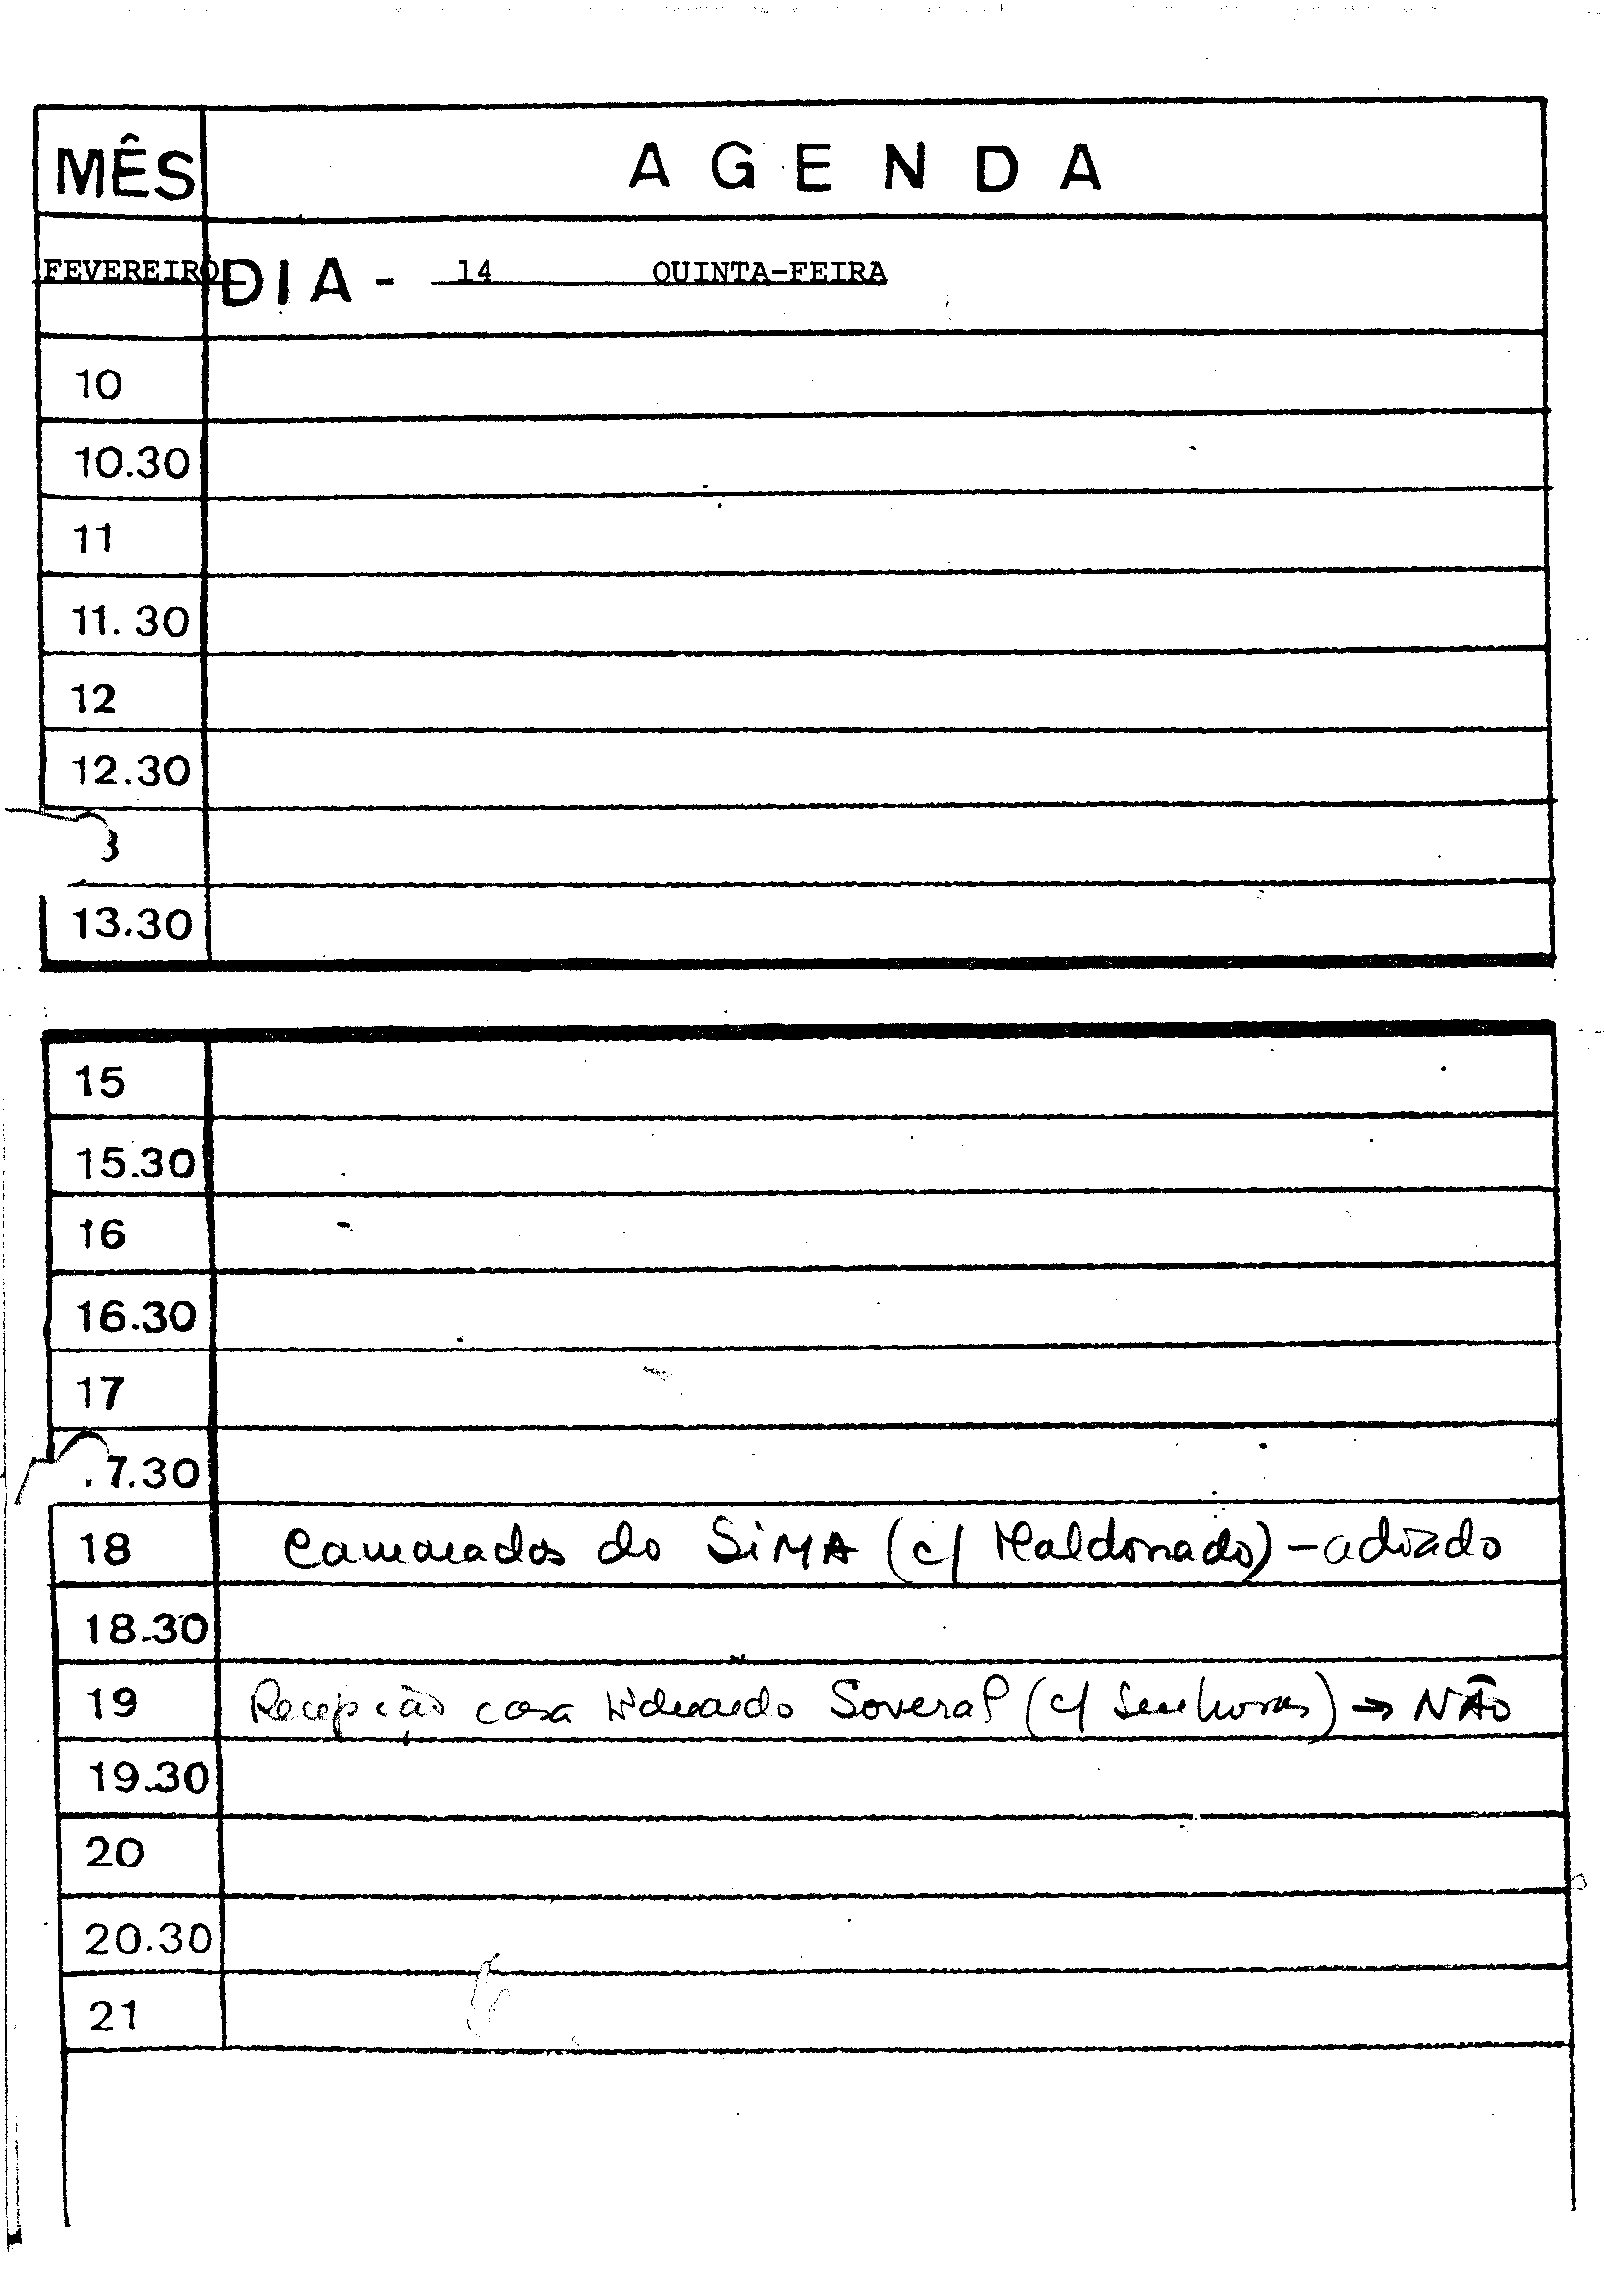 MÊS AGENDA
FEVEREIRO DIA - 14 QUINTA-FEIRA
10
10.30
11
11.30
12
12.30
3
13.30
15
15.30
16
16.30
17
.7.30
18 Camaradas do SIMA (c/ Maldonado) - adiado
18.30
19 Recepção casa Eduardo Soveral (c/ Senhoras) → NÃO
19.30
20
20.30
21